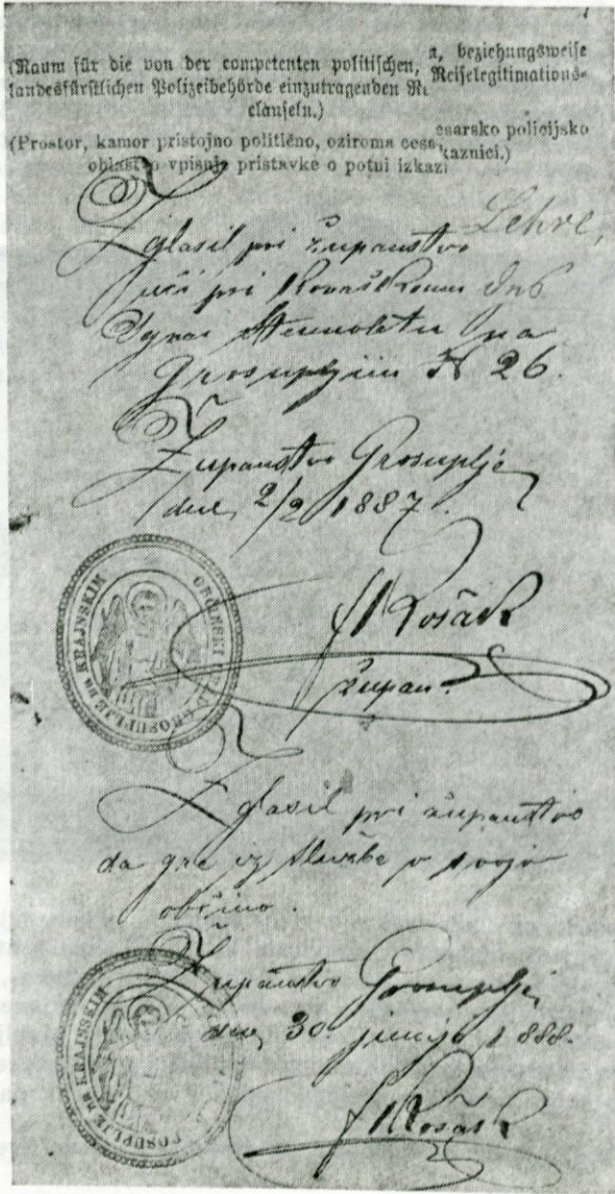 (Raum für die von der competenten politischen, a, beziehungsweise
landesfürstlichen Polizeibehörde einzutragenden Re Reiselegitimations-
clauseln.)
(Prostor, kamor pristojno politično, oziroma cesa esarsko policijsko
oblastvo vpisuje pristavke o potni izkazi kaznici.)
Lehre,
Zglasil pri županstvo
uči pri
na
Grosupljim N 26.
Županstvo Grosuplje
dne, 2/2 1887.
OBČINSKI URAD GROSUPLJE NA KRAJNSKIM
Košak
župan.
Zglasil pri županstvo
da gre iz službe v svojo
občino.
Županstvo Grosuplje
dne, 30. junija 1888.
GROSUPLJE NA KRAJNSKIM
Košak